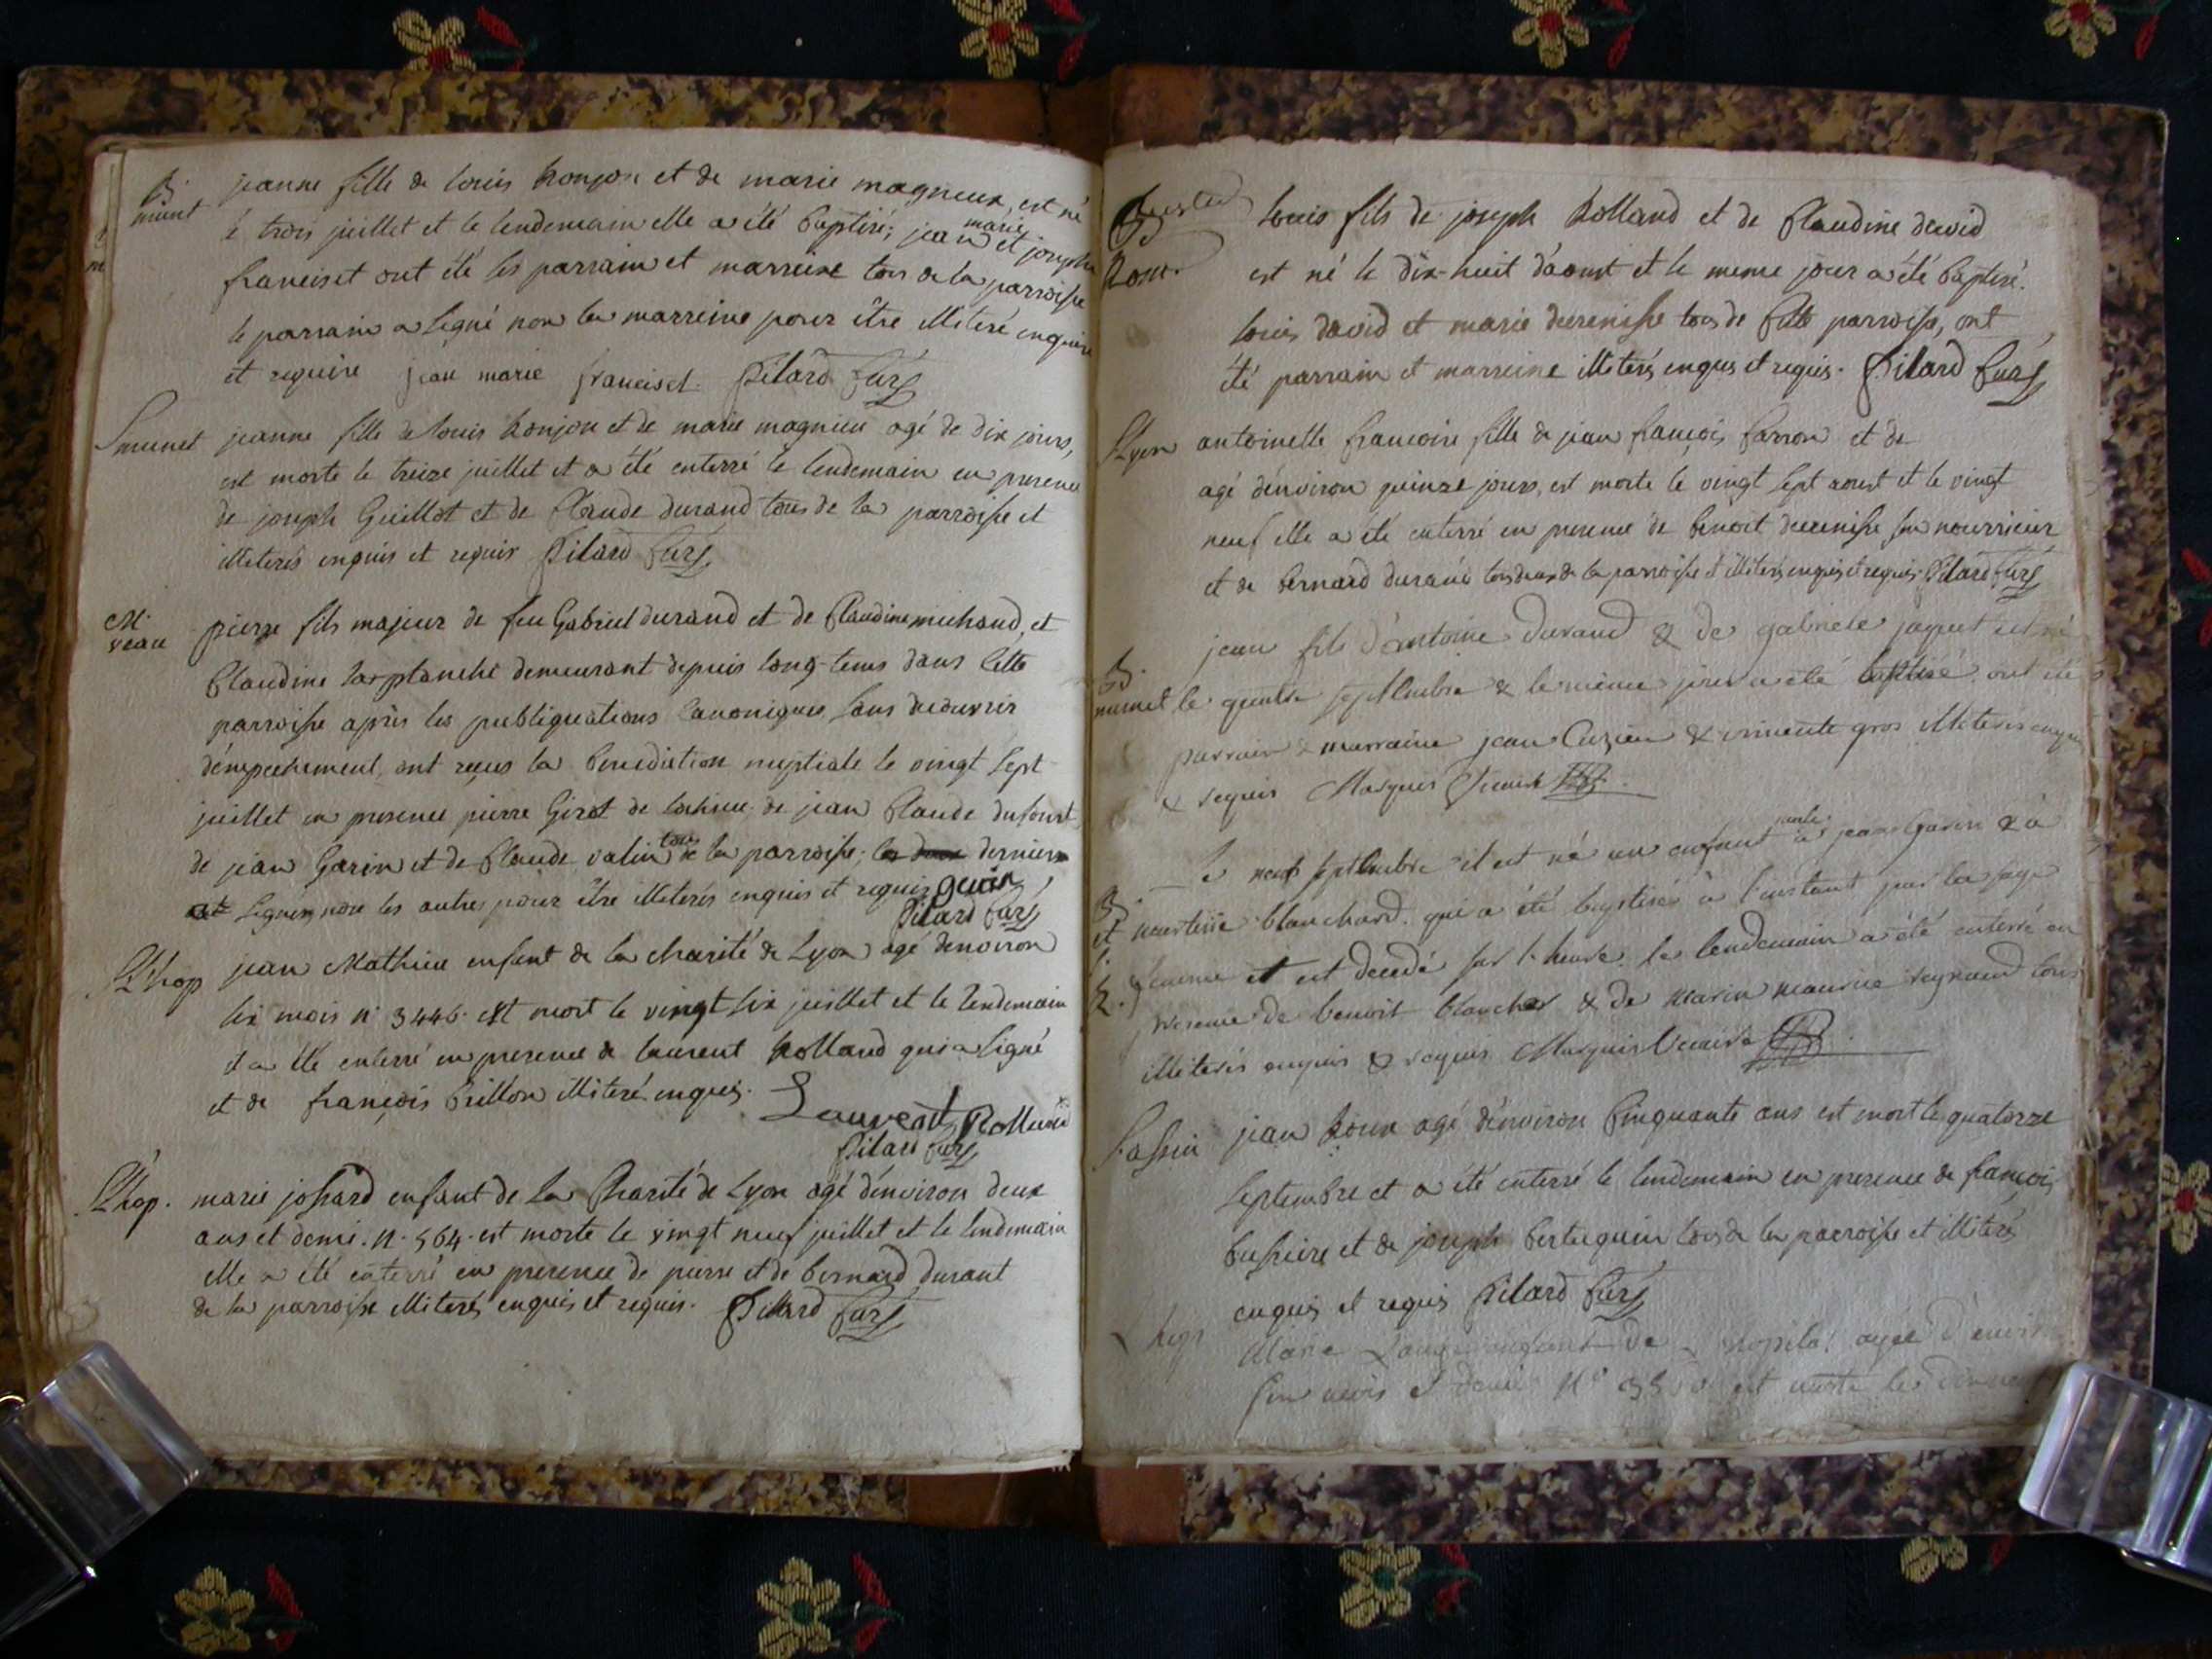 B. jeanne fille de louis honjon et de marie magneux, est né
munet le trois juillet et le lendemain elle a été baptisé; jean marie et joseph
franciset ont été les parrain et marreine tous de la parroisse
le parrain a signé non la marreine pour être illiteré enquise
et requise jean marie franciset. Pilard Curé
S munet jeanne fille de louis honjon et de marie magnieu agé de dix jours,
est morte le treize juillet et a été enterré le lendemain en presence
de joseph Guillot et de Claude durand tous de la parroisse et
illiterés enquis et requis Pilard Curé
M. pierre fils majeur de feu Gabriel durand et de Claudine michaud, et
veau Claudine laplanche demeurant depuis long-tems dans cette
parroisse après les publiquations canoniques sans decouvrir
d'empechement, ont reçus la benediction nuptiale le vingt sept
juillet en presence pierre Girot de de jean Claude dufour
de jean Garin et de Claude valin tous de la parroisse; les derniers
signer non les autres pour être illiterés enquis et requis gurin
Pilard Curé
S. hop jean Mathieu enfant de la charité de Lyon agé denviron
six mois n° 3446. est mort le vingt six juillet et le lendemain
il a été enterré en presence de laurent Rolland qui a signé
et de françois brillon illiteré enquis. Laurent Rolland
Pilard Curé
S. hop. marie jossard enfant de la Charité de Lyon agé d'environ deux
ans et demi. n. 564. est morte le vingt neuf juillet et le lendemain
elle a été enterré en presence de pierre et de bernard durant
de la parroisse illiterés enquis et requis. Pilard Curé
B. louis fils de joseph Rolland et de Claudine david
Rom. est né le dix-huit d'aoust et le meme jour a été baptisé.
louis david et marie decrenisse tous de cette parroisse, ont
été parrain et marreine illiterés enquis et requis. Pilard Curé
S. Lyon antoinette françoise fille de jean françois farron et de
agé d'environ quinze jours, est morte le vingt sept aoust et le vingt
neuf elle a été enterré en presence de benoit decrenisse son nourricier
et de bernard durand tous deux de la parroisse et illiterés enquis et requis. Pilard Curé
jean fils d'antoine durand & de gabriele jaquet est né
B. munet le septembre & le même jour a été baptisé ont été
parrain & marraine jean Cuzieu & vincente gros illiterés enquis
& requis Marquis Vicaire
Le neuf septembre il est né un enfant male à jean Garin & à
B. et S. blanchard. qui a été baptisé à l'instant par la sage
femme et est decedé sur l'heure. le lendemain a été enterré en
presence de benoit blanchar & de marin maurice reynaud tous
illiterés enquis & requis Marquis Vicaire
S. assin jean Roux agé d'environ Cinquante ans est mort le quatorze
septembre et a été enterré le lendemain en presence de françois
bussiere et de joseph bertuquin tous de la parroisse et illiterés
enquis et requis Pilard Curé
S hop Marie enfant de L'hopital agée d'environ
mois et demi N° est morte le